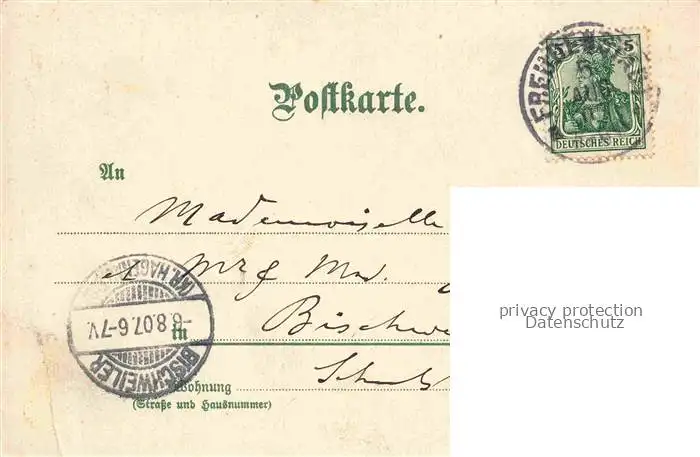 Postkarte.
5
DEUTSCHES REICH
An
Mademoiselle
et
Bischwe
in
Wohnung
(Straße und Hausnummer)
BISCHWEILER
-6.8.07.6-7V.
(KR. HAGEN
privacy protection
Datenschutz